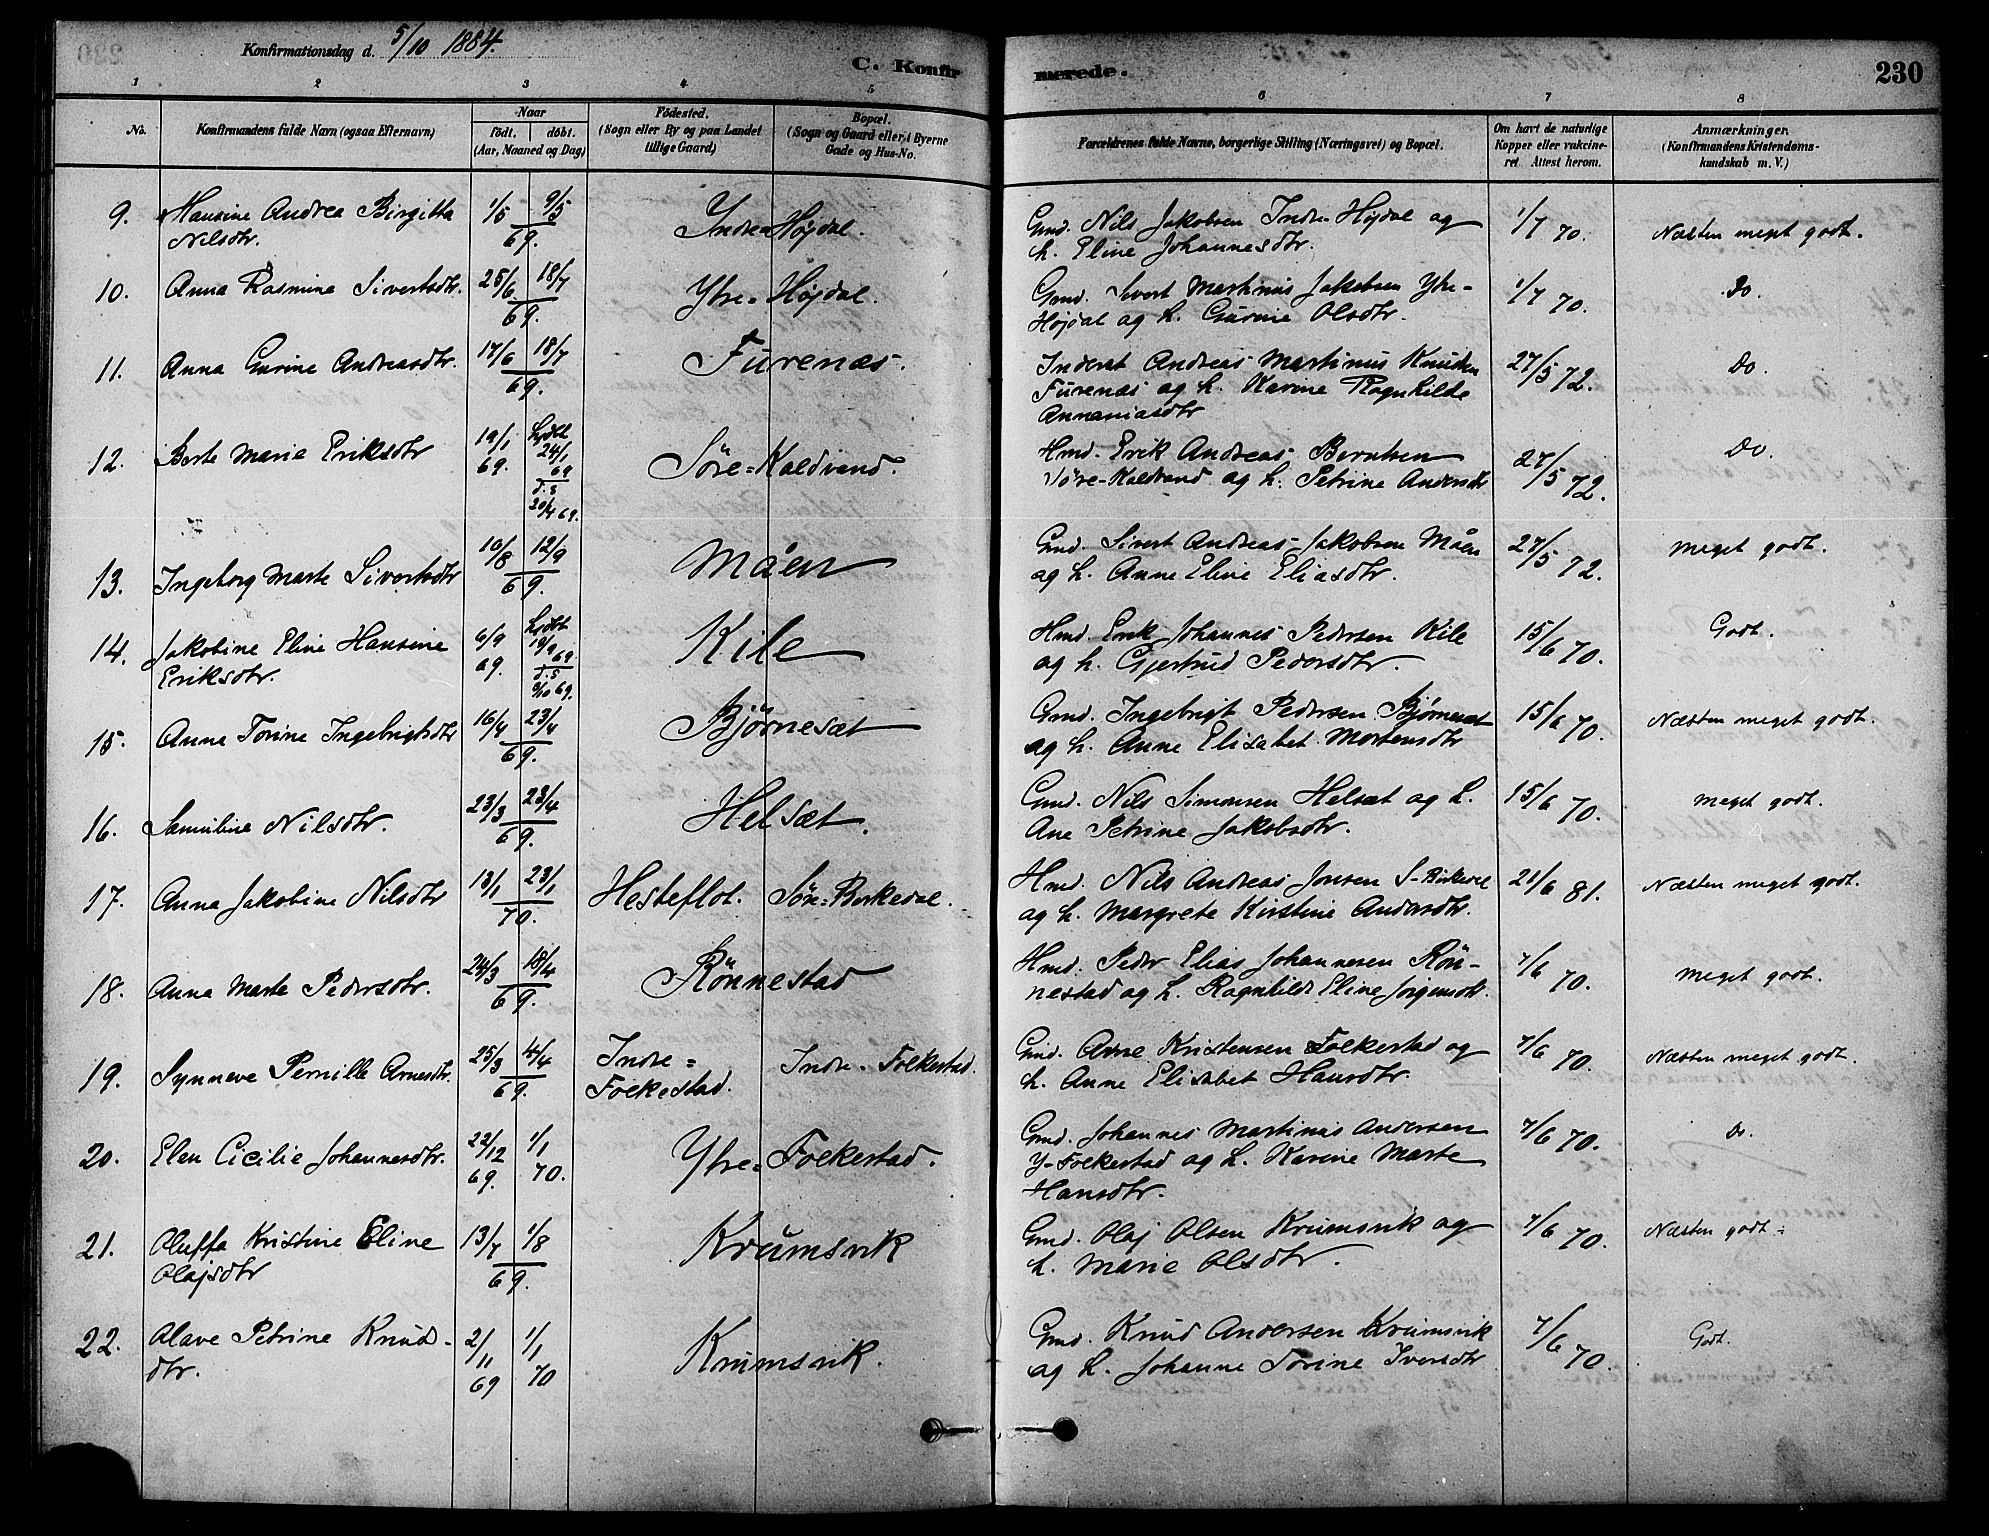 Konfirmationsdag d. 5/10 1884.
C. Konfirmerede.
230
1 2 3 4 5 6 7 8
No.
Konfirmandens fulde Navn (ogsaa Efternavn)
Naar
födt. döbt.
(Aar, Maaned og Dag)
Födested.
(Sogn eller By og paa Landet
tillige Gaard)
Bopæl.
(Sogn og Gaard eller, i Byerne
Gade og Hus-No.
Forældrenes fulde Navne, borgerlige Stilling (Næringsvei) og Bopæl.
Om havt de naturlige
Kopper eller vakcine-
ret. Attest herom.
Anmærkninger.
(Konfirmandens Kristendoms-
kundskab m. V.)
9. Hansine Andrea Birgitta 1/5 9/5 Indre=Højdal. Gmd. Nils Jakobsen Indre-Højdal og 1/7 70. Næsten meget godt.
Nilsdtr. 69. h. Eline Johannesdtr.
10. Anna Rasmina Sivertsdtr. 25/6 18/7 Ytre=Højdal. Gmd. Sivert Martinus Jakobsen Ytre- 1/7 70. Do.
69. Højdal og h. Gurine Olsdtr.
11. Anna Gurine Andreasdtr. 17/6 18/7 Furenæs. Inderst Andreas Martinus Knudsen 27/5 72. Do.
69. Furenæs og h. Karine Ragnhilde
Annaniasdtr
12. Berte Marie Eriksdtr 19/1 69. hjdbt 24/1 69 Söre=Kaldvand. Hmd. Erik Andreas Berntsen 27/5 72. Do.
d. s. 20/4 69. Söre-Kaldvand og h. Petrine Andersdtr
13. Ingeborg Marte Sivertsdtr 10/8 12/9 Måen Gmd. Sivert Andreas Jakobsen Måen 27/5 72. Meget godt.
69. og h. Anne Eline Eliasdtr.
14. Jakobine Eline Hansine 6/9 69. hjdbt 19/9 69. Kile Hmd. Erik Johannes Pedersen Kile 15/6 70. Godt.
Eriksdtr. og h. Gjertrud Pedersdtr.
15. Anne Torine Ingebrigtsdtr 16/4 23/4 Bjørnesæt Gmd. Ingebrigt Pedersen Bjørnesæt 15/6 70. Næsten meget godt.
69. og h. Anne Elisabet Mortensdtr
16. Samuline Nilsdtr. 23/3 23/4 Helsæt. Gmd. Nils Simonsen Helsæt og h. 15/6 70. Meget godt.
69. Ane Petrine Jakobsdtr.
17. Anna Jakobine Nilsdtr 13/1 23/1 Hesteflot. Söre=Birkedal. Hmd. Nils Andreas Jonsen S-Birkedal 21/6 81. Næsten meget godt.
70. og h. Margrete Kirstine Andersdtr.
18. Anna Marte Pedersdtr. 24/3 18/4 Rönnestad Hmd. Peder Elias Johannesen Rön- 7/6 70. Meget godt.
69. nestad og h. Ragnhild Eline Jörgensdtr.
19. Synneve Pernille Arnesdtr. 25/3 4/4 Indre= Indre-Folkestad. Gmd. Arne Kristensen Folkestad og 7/6 70. Næsten meget godt.
69. Folkestad. h. Anne Elisabet Hansdtr.
20. Elen Cicilie Johannesdtr. 22/12 69. 1/1 70. Ytre=Folkestad. Gmd. Johannes Martinus Andersen 7/6 70. Do.
Y-Folkestad og h. Karine Marte
Hansdtr.
21. Oluffa Kristine Eline 13/7 1/8 Krumsvik Gmd. Olaj Olsen Krumsvik og 7/6 70. Næsten godt.
Olajsdtr 69. h. Marie Olsdtr.
22. Olave Petrine Knuds- 2/11 69 1/1 70 Krumsvik. Gmd. Knud Andersen Krumsvik 7/6 70. Godt.
dtr. og h. Johanne Torine Iversdtr